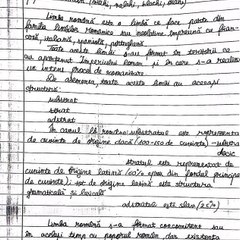 Limba română este o limbă ce face parte din
familia limbilor romanice sau neolatine, împreună cu fran-
ceză, italiană, spaniolă, portugheză
Toate aceste limbi s-au format în teritorii ce
au aparținut Imperiului Roman și în care s-a realizat
un intens proces de romanizare
De asemenea, toate aceste limbi au aceeași
structură:
substrat
strat
adstrat
În cazul lb. române substratul este reprezentat
de cuvinte de origine dacă (100-150 de cuvinte)
stratul este reprezentat de
cuvinte de origine latină (60% din fondul principal
de cuvinte), tot de origine latină este structura
gramaticală și lexicală
adstratul este slav (20%)
Limba română s-a format concomitent cu
în același timp cu poporul român